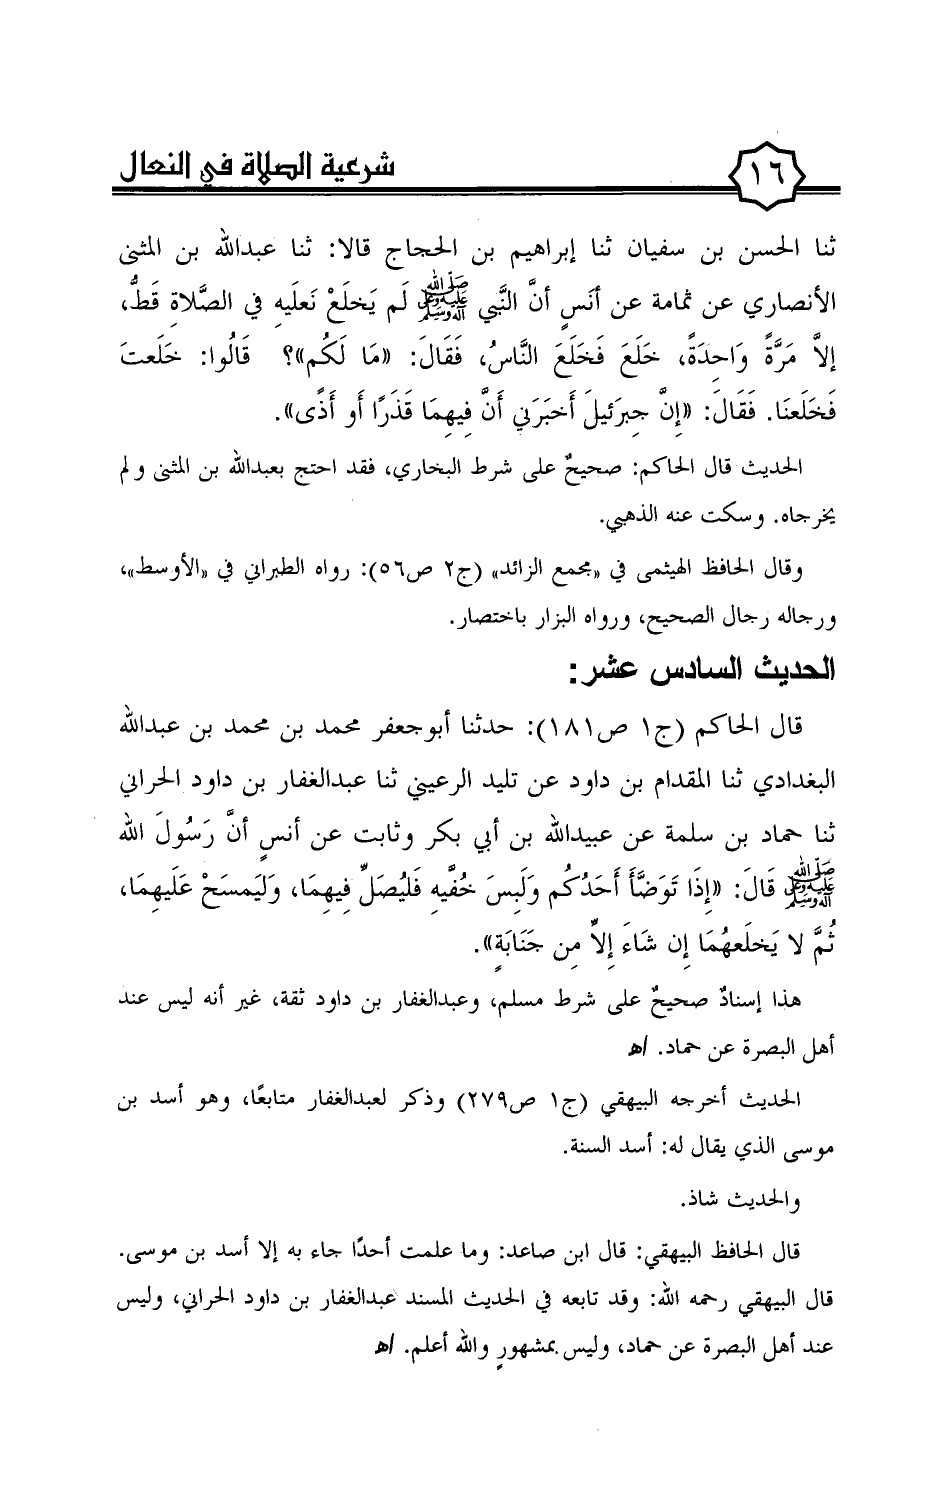 شرعية الصلاة في النعال
١٦
ثنا الحسن بن سفيان ثنا إبراهيم بن الحجاج قالا: ثنا عبدالله بن المثنى
الأنصاري عن ثمامة عن أنَسٍ أنَّ النَّبي ﷺ لَم يَخلَعْ نَعلَيهِ في الصَّلاةِ قَطُّ،
إلاَّ مَرَّةً وَاحِدَةً، خَلَعَ فَخَلَعَ النَّاسُ، فَقَالَ: «مَا لَكُم»؟ قَالُوا: خَلَعتَ
فَخَلَعنَا. فَقَالَ: «إِنَّ جِبرَئيلَ أَخبَرَنِي أَنَّ فِيهِمَا قَذَرًا أَو أَذًى».
الحديث قال الحاكم: صحيحٌ على شرط البخاري، فقد احتج بعبدالله بن المثنى ولم
يخرجاه. وسكت عنه الذهبي.
وقال الحافظ الهيثمى في «مجمع الزائد» (ج٢ ص٥٦): رواه الطبراني في «الأوسط»،
ورجاله رجال الصحيح، ورواه البزار باختصار.
الحديث السادس عشر:
قال الحاكم (ج١ ص١٨١): حدثنا أبوجعفر محمد بن محمد بن عبدالله
البغدادي ثنا المقدام بن داود عن تليد الرعيني ثنا عبدالغفار بن داود الحراني
ثنا حماد بن سلمة عن عبيدالله بن أبي بكر وثابت عن أنسٍ أنَّ رَسُولَ الله
ﷺ قَالَ: «إِذَا تَوَضَّأَ أَحَدُكُم وَلَبِسَ خُفَّيهِ فَليُصَلِّ فِيهِمَا، وَليَمسَحْ عَلَيهِمَا،
ثُمَّ لا يَخلَعهُمَا إِن شَاءَ إِلاَّ مِن جَنَابَةٍ».
هذا إسنادٌ صحيحٌ على شرط مسلم، وعبدالغفار بن داود ثقة، غير أنه ليس عند
أهل البصرة عن حماد. اﻫ
الحديث أخرجه البيهقي (ج١ ص٢٧٩) وذكر لعبدالغفار متابعًا، وهو أسد بن
موسى الذي يقال له: أسد السنة.
والحديث شاذ.
قال الحافظ البيهقي: قال ابن صاعد: وما علمت أحدًا جاء به إلا أسد بن موسى.
قال البيهقي رحمه الله: وقد تابعه في الحديث المسند عبدالغفار بن داود الحراني، وليس
عند أهل البصرة عن حماد، وليس بمشهورٍ والله أعلم. اﻫ